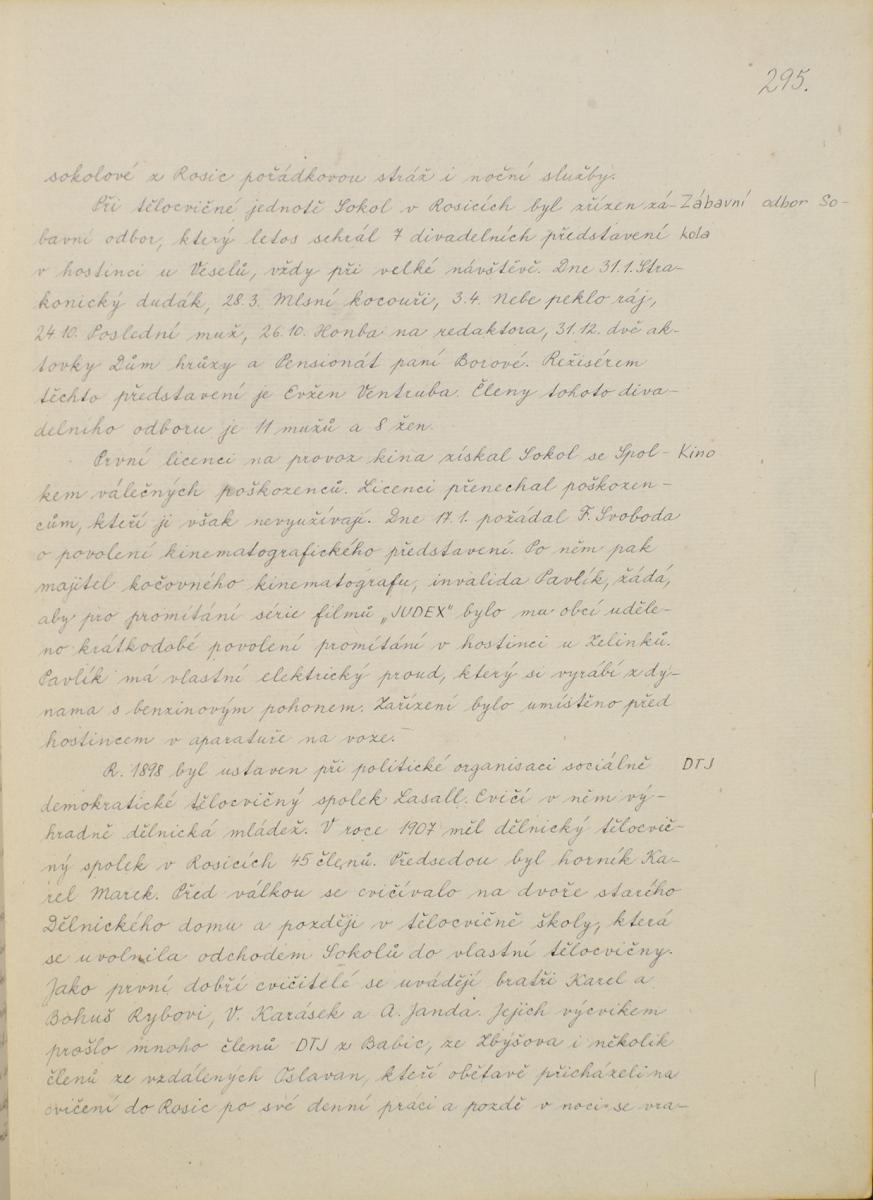 295.
sokolové z Rosic pořádkovou stráž i noční služby.
Při tělocvičné jednotě Sokol v Rosicích byl zřízen zá- Zábavní odbor So-
bavní odbor, který letos sehrál 7 divadelních představení kola
v hostinci u Veselů, vždy při velké návštěvě. Dne 31.1. Stra-
konický dudák, 28.3. Mlsní kocouři, 3.4. Nebe peklo ráj,
24.10. Poslední muž, 26.10. Honba na redaktora, 31.12. dvě ak-
tovky Dům hrůzy a Pensionát paní Borové. Režisérem
těchto představení je Evžen Ventruba. Členy tohoto diva-
delního odboru je 11 mužů a 8 žen.
První licenci na provoz kina získal Sokol se Spol- Kino
kem válečných poškozenců. Licenci přenechal poškozen-
cům, kteří ji však nevyužívají. Dne 17.1. požádal F. Svoboda
o povolení kinematografického představení. Po něm pak
majitel kočovného kinematografu, invalida Pavlík, žádá,
aby pro promítání série filmů „JUDEX" bylo mu obcí uděle-
no krátkodobé povolení promítání v hostinci u Zelinků.
Pavlík má vlastní elektrický proud, který si vyrábí z dy-
nama s benzinovým pohonem. Zařízení bylo umístěno před
hostincem v aparatuře na voze.
R. 1898 byl ustaven při politické organisaci sociálně DTJ
demokratické tělocvičný spolek Lasall. Cvičí v něm vý-
hradně dělnická mládež. V roce 1907 měl dělnický tělocvič-
ný spolek v Rosicích 45 členů. Předsedou byl horník Ka-
rel Marek. Před válkou se cvičívalo na dvoře starého
Dělnického domu a později v tělocvičně školy, která
se uvolnila odchodem Sokolů do vlastní tělocvičny.
Jako první dobří cvičitelé se uvádějí bratři Karel a
Bohuš Rybovi, V. Karásek a A. Janda. Jejich výcvikem
prošlo mnoho členů DTJ z Babic, ze Zbýšova i několik
členů ze vzdálených Oslavan, kteří obětavě přicházeli na
cvičení do Rosic po své denní práci a pozdě v noci se vra-